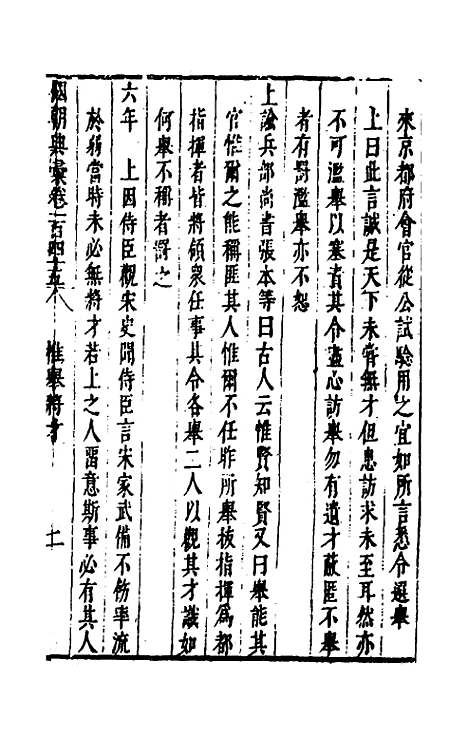 來京都府會官從公試驗用之宜如所言悉令選舉
上曰此言誠是天下未嘗無才但患訪求未至耳然亦
不可濫舉以塞責其令盡心訪舉勿有遺才蔽匿不舉
者有罰濫舉亦不恕
上諭兵部尚書張本等曰古人云惟賢知賢又曰舉能其
官惟爾之能稱匪其人惟爾不任昨所舉校指揮爲都
指揮者皆將領衆任事其令各舉二人以觀其才識如
何舉不稱者罰之
六年 上因侍臣觀宋史問侍臣言宋家武備不飭率流
於弱當時未必無將才若上之人畱意斯事必有其人
國朝典彙卷一百四十五 推舉將才 十一